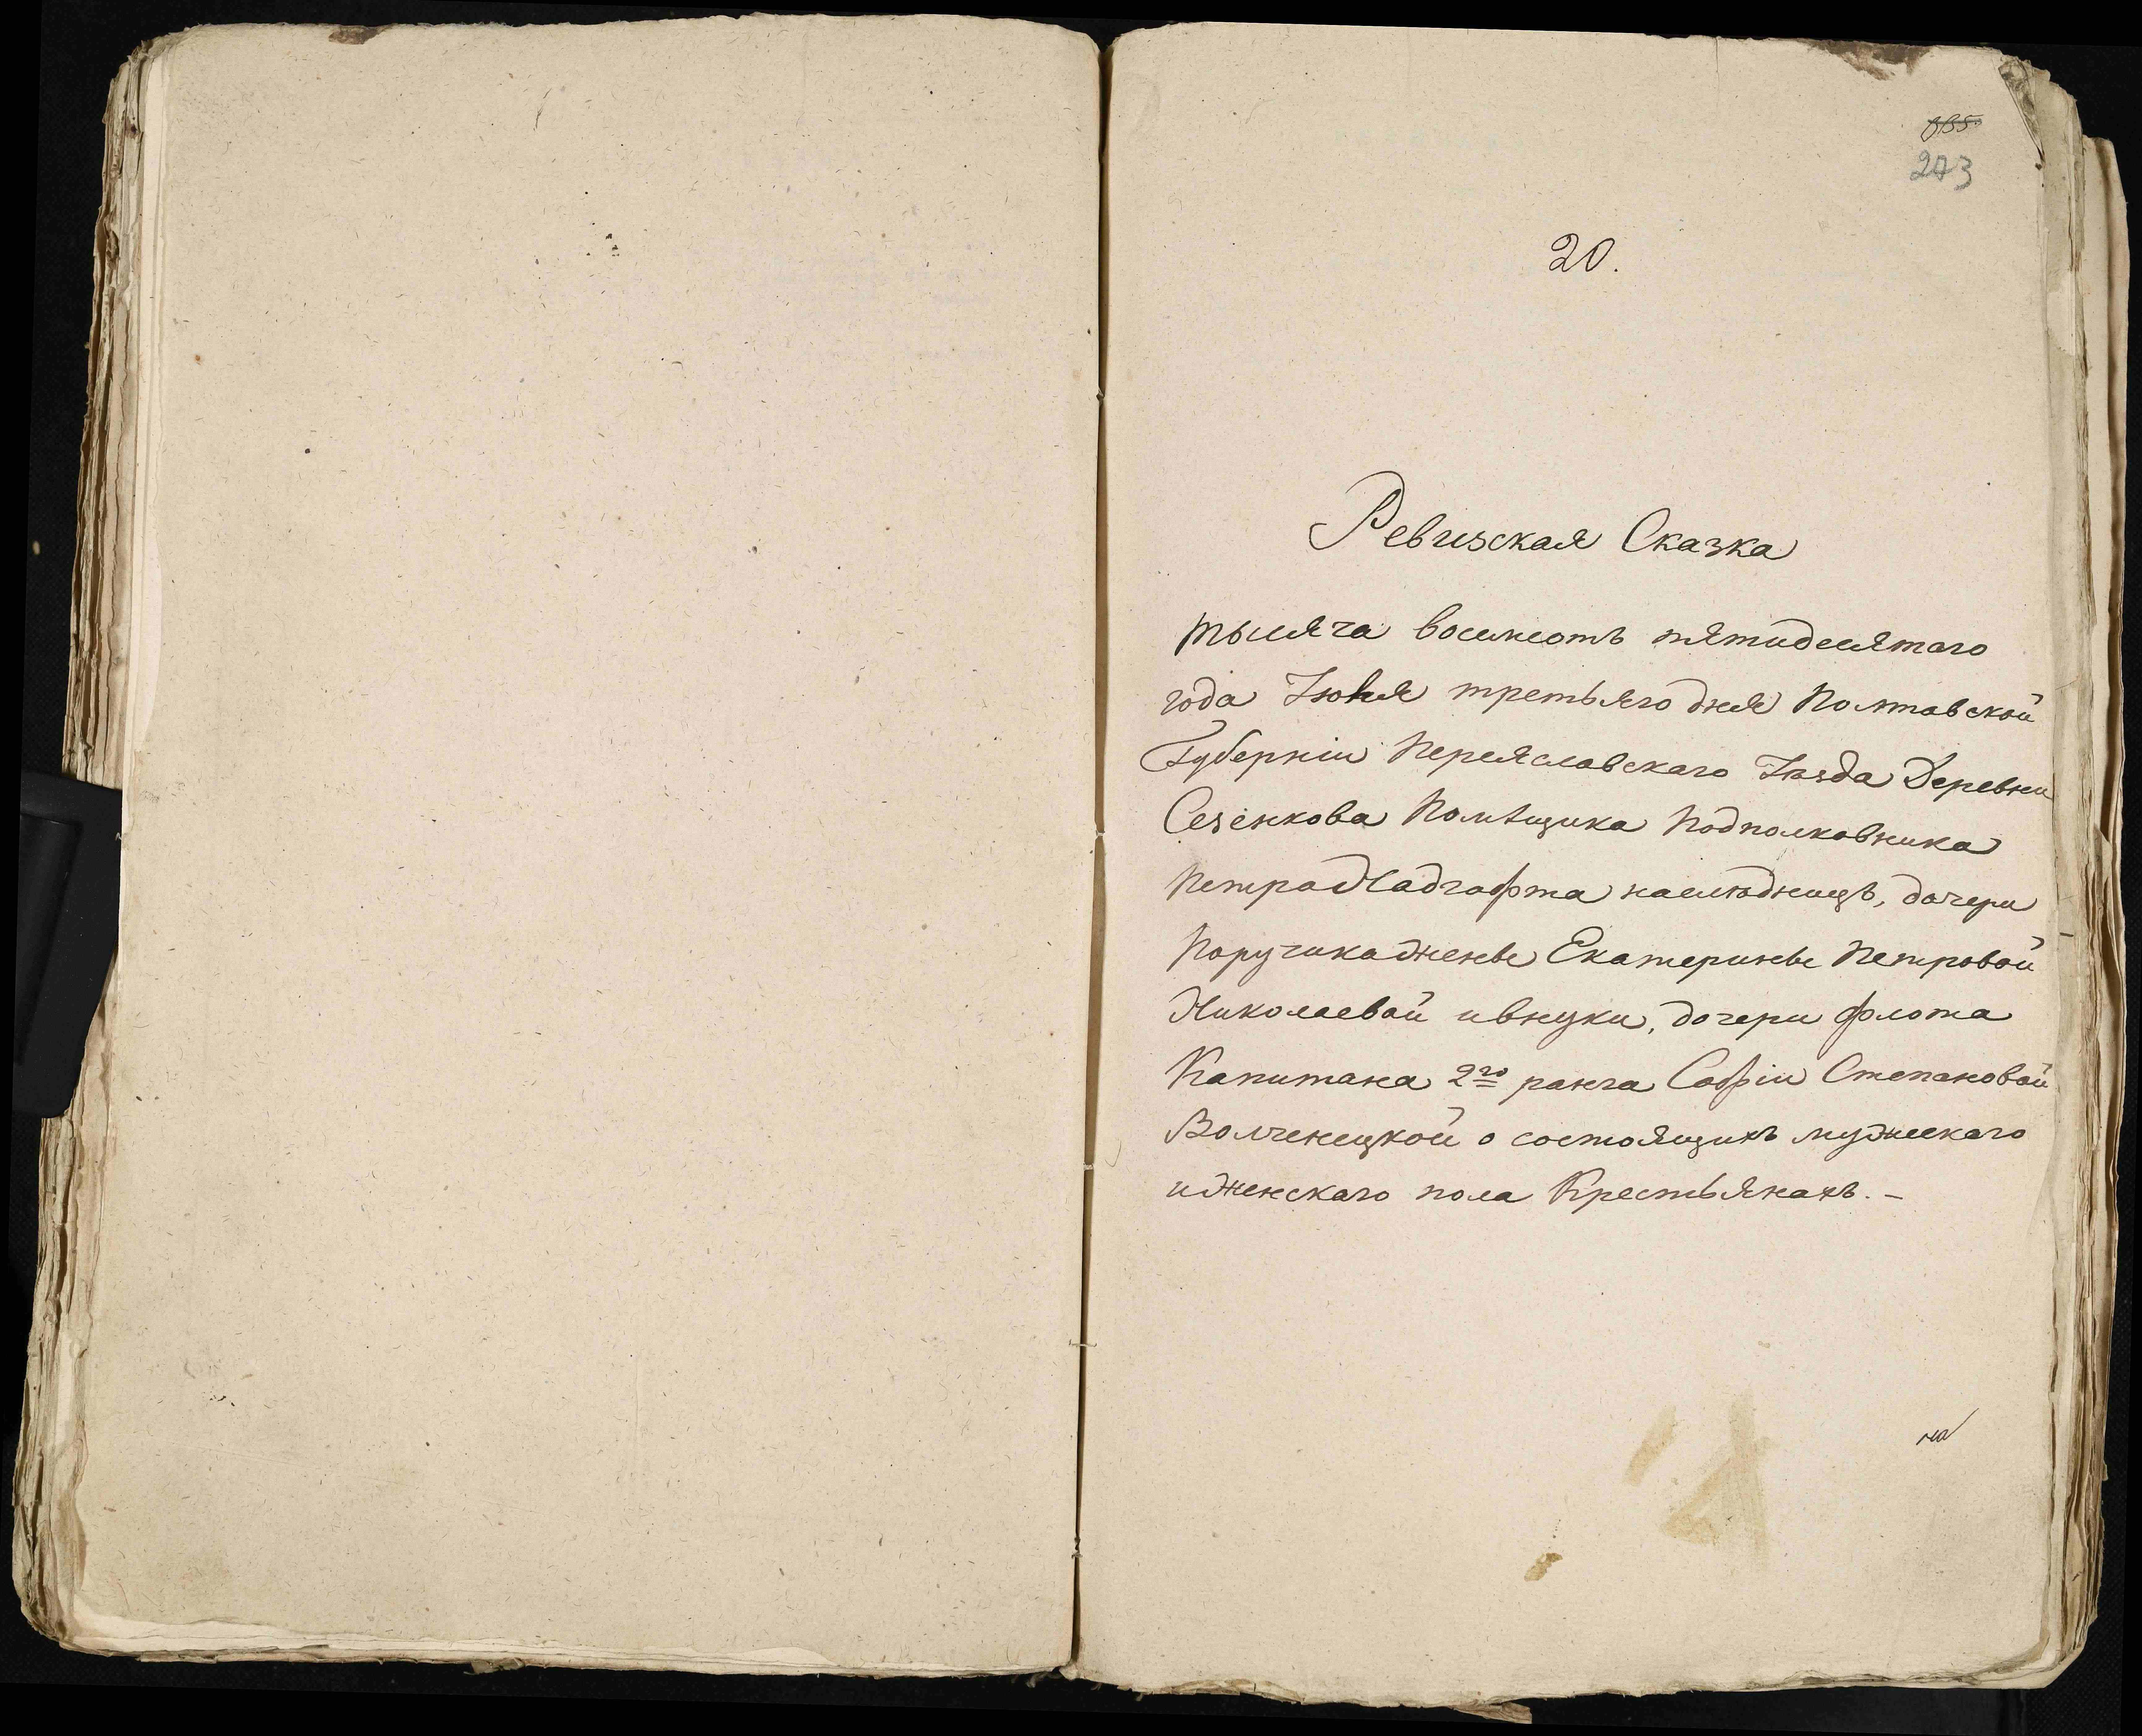 273
20.
Ревизская Сказка
тысяча восемсотъ пятидесятаго
года Іюня третьяго дня Полтавской
Губерніи Переяславскаго Уѣзда Деревни
Сезенкова Помѣщика Подполковника
Петра наслѣдницъ, дочери
Поручика жены Екатерины Петровой
Николаевой и внуки, дочери флота
Капитана 2го ранга Софіи Степановой
Волченецкой о состоящихъ мужескаго
и женскаго пола Крестьянахъ. –